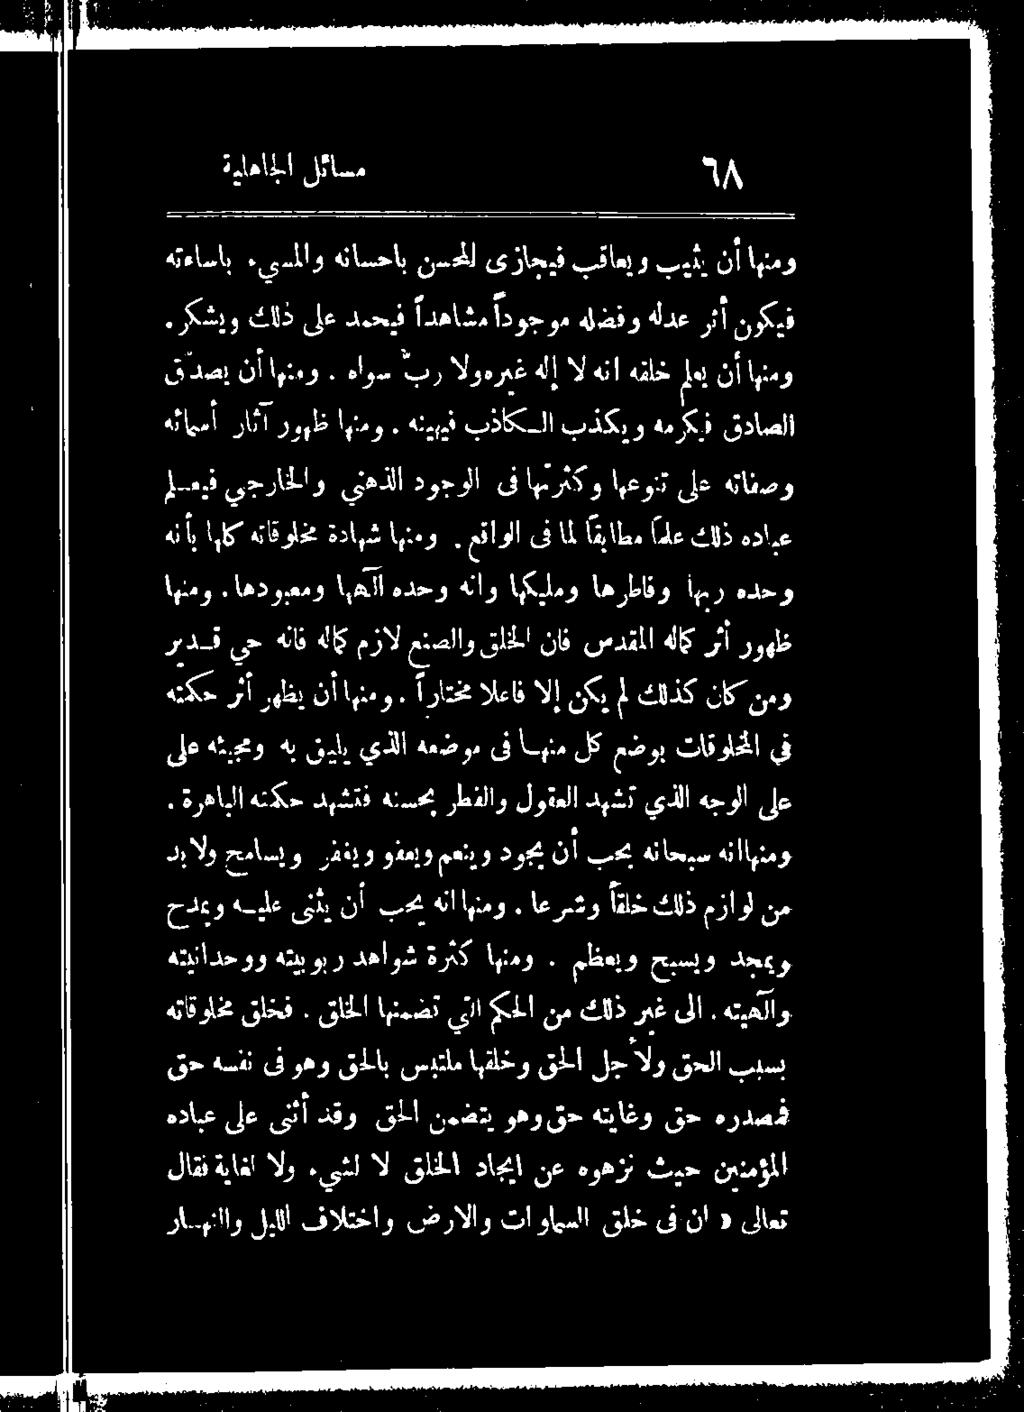 ٦٨ مسائل الجاهلية
ومنها أن يثيب ويعاقب فيجازى المحسن باحسانه والمسيء باساءته
فيكون أثر عدله وفضله موجوداً مشاهداً فيحمد على ذلك ويشكر.
ومنها أن يعلم خلقه انه لا إله غيره ولا ربّ سواه. ومنها أن يصدّق
الصادق فيكرمه ويكذب الكاذب فيهينه. ومنها ظهور آثار أسمائه
وصفاته على تنوعها وكثرتها فى الوجود الذهني والخارجي فيعلم
عباده ذلك علماً مطابقاً لما فى الواقع. ومنها شهادة مخلوقاته كلها بأنه
وحده ربها وفاطرها ومليكها وانه وحده آلهها ومعبودها. ومنها
ظهور أثر كماله المقدس فان الخلق والصنع لازم كماله فانه حي قدير
ومن كان كذلك لم يكن إلا فاعلا مختاراً. ومنها أن يظهر أثر حكمته
في المخلوقات بوضع كل منها فى موضعه الذي يليق به ومجيئه على
على الوجه الذي تشهد العقول والفطر بحسنه فتشهد حكمته الباهرة.
ومنها انه سبحانه يحب أن يجود وينعم ويعفو ويغفر ويسامح ولا بد
من لوازم ذلك خلقاً وشرعا. ومنها انه يحب أن يثنى عليه ويمدح
ويمجد ويسبح ويعظم. ومنها كثرة شواهد ربوبيته ووحدانيته
وآلهيته. الى غير ذلك من الحكم التي تضمنها الخلق. فخلق مخلوقاته
بسبب الحق ولأجل الحق وخلقها ملتبس بالحق وهو فى نفسه حق
فمصدره حق وغايته حق وهو يتضمن الحق وقد أثنى على عباده
المؤمنين حيث نزهوه عن ايجاد الخلق لا لشيء ولا لغاية فقال
تعالى « ان فى خلق السماوات والارض واختلاف الليل والنهار